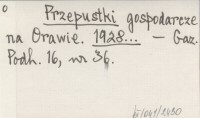 o
Przepustki gospodarcze
na Orawie. 1928... — Gaz.
Podh. 16, nr 36.